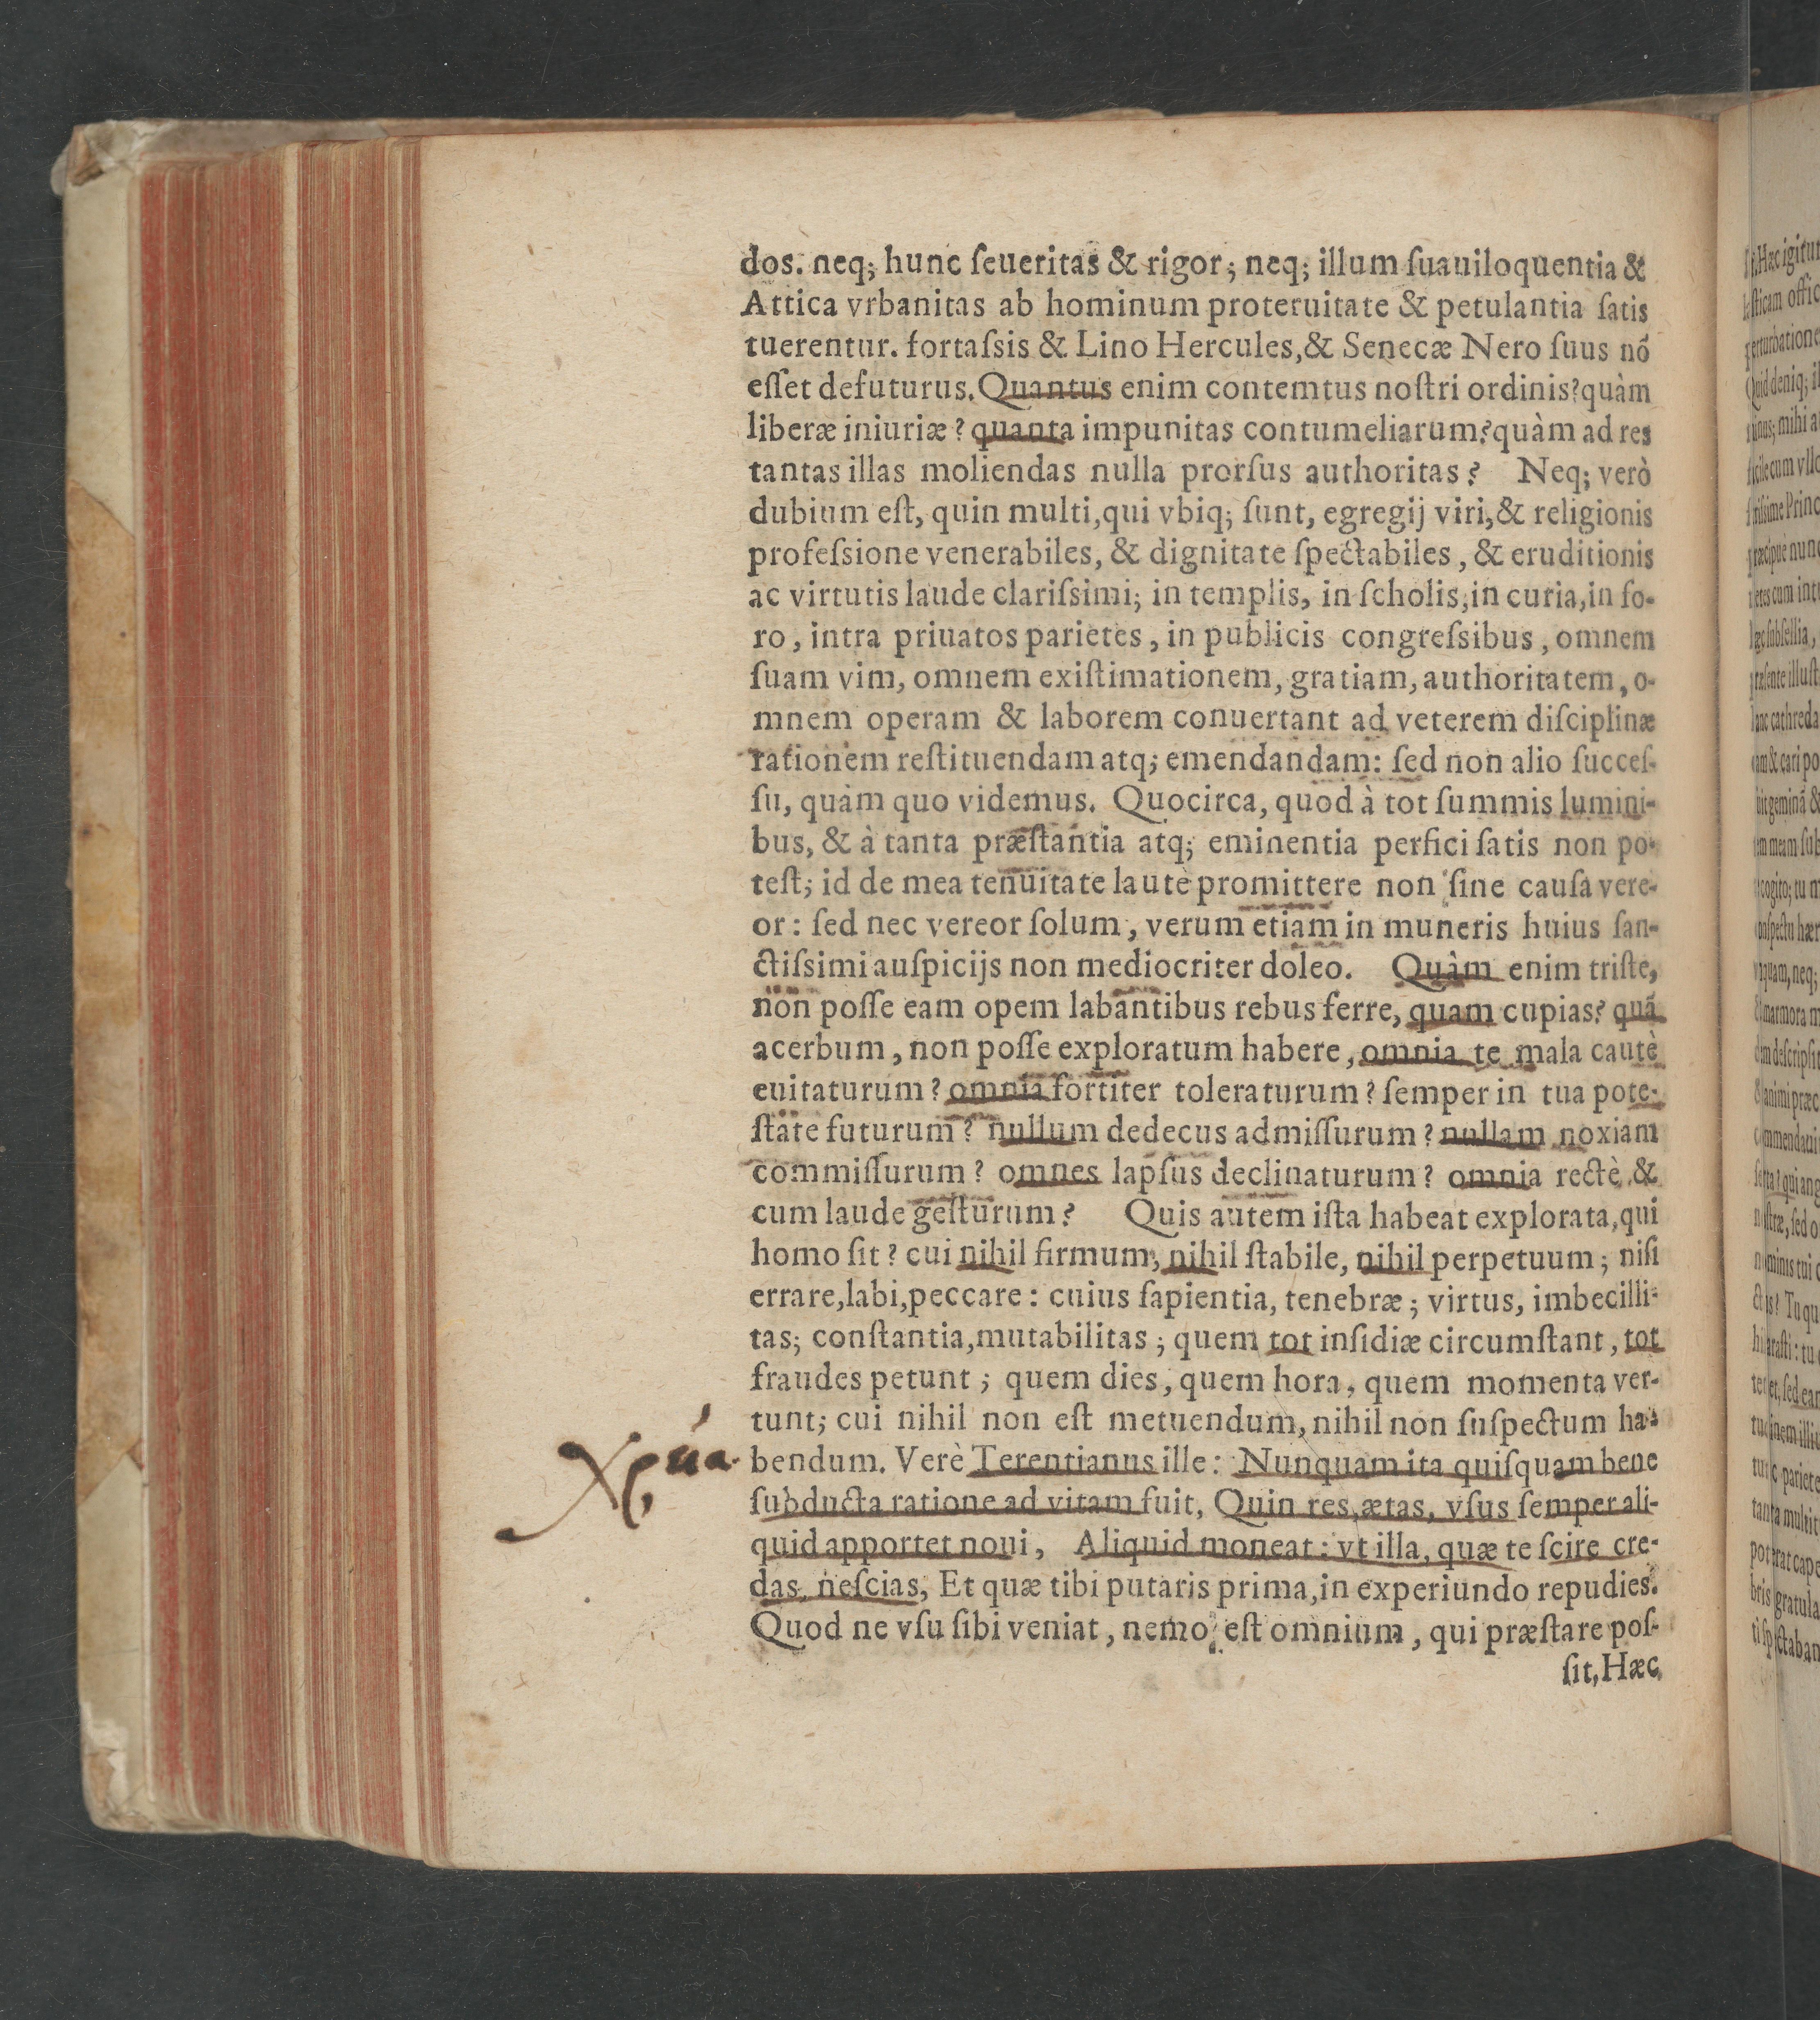 dos. neq; hunc ſeueritas & rigor; neq; illum ſuauiloquentia &
Attica vrbanitas ab hominum proteruitate & petulantia ſatis
tuerentur. fortaſsis & Lino Hercules,& Senecæ Nero ſuus nõ
eſſet defuturus. Quantus enim contemtus noſtri ordinis? quàm
liberæ iniuriæ? quanta impunitas contumeliarum? quàm ad res
tantas illas moliendas nulla prorſus authoritas? Neq; verò
dubium eſt, quin multi, qui vbiq; ſunt, egregij viri, & religionis
profeſsione venerabiles, & dignitate ſpectabiles, & eruditionis
ac virtutis laude clariſsimi; in templis, in ſcholis, in curia, in fo-
ro, intra priuatos parietes, in publicis congreſsibus, omnem
ſuam vim, omnem exiſtimationem, gratiam, authoritatem, o-
mnem operam & laborem conuertant ad veterem diſciplinæ
rationem reſtituendam atq; emendandam: ſed non alio ſucceſ-
ſu, quàm quo videmus. Quocirca, quod à tot ſummis lumini-
bus, & à tanta præſtantia atq; eminentia perfici ſatis non po-
teſt; id de mea tenuitate lautè promittere non ſine cauſa vere-
or: ſed nec vereor ſolum, verum etiam in muneris huius ſan-
ctiſsimi auſpicijs non mediocriter doleo. Quàm enim triſte,
non poſſe eam opem labantibus rebus ferre, quam cupias? quã
acerbum, non poſſe exploratum habere, omnia te mala cautè
euitaturum? omnia fortiter toleraturum? ſemper in tua pote-
ſtate futurum? nullum dedecus admiſſurum? nullam noxiam
commiſſurum? omnes lapſus declinaturum? omnia rectè &
cum laude geſturum? Quis autem iſta habeat explorata, qui
homo ſit? cui nihil firmum, nihil ſtabile, nihil perpetuum; niſi
errare, labi, peccare: cuius ſapientia, tenebræ; virtus, imbecilli-
tas; conſtantia, mutabilitas; quem tot inſidiæ circumſtant, tot
fraudes petunt; quem dies, quem hora, quem momenta ver-
tunt; cui nihil non eſt metuendum, nihil non ſuſpectum ha-
bendum. Verè Terentianus ille: Nunquam ita quiſquam bene
ſubducta ratione ad vitam fuit, Quin res, ætas, vſus ſemper ali-
quid apportet noui, Aliquid moneat: vt illa, quæ te ſcire cre-
das, neſcias, Et quæ tibi putaris prima, in experiundo repudies.
Quod ne vſu ſibi veniat, nemo eſt omnium, qui præſtare poſ-
ſit, Hæc